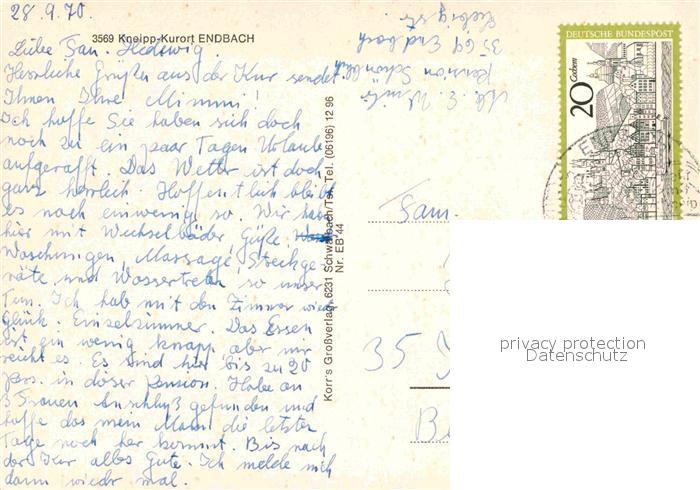 28.9.70
3569 Kneipp-Kurort ENDBACH
Liebe Fam. Hedewig.
Herzliche Grüße aus der Kur sendet
Ihnen Ihre Mimmi!
Ich hoffe Sie haben sich doch
noch zu ein paar Tagen Urlaub
aufgerafft. Das Wetter ist doch
ganz herrlich. Hoffentlich bleibt
es noch einwenig so. Wir haben
hier mit Wechselbäder, Güße,
Waschungen, Massage, Streckge-
räte und Wassertreten so unser
Tun. Ich hab mit den Zimmer wieder
Glück. Einzelzimmer. Das Essen
ist ein wenig knapp aber mir
reicht es. Es sind hier bis zu 20
Pers. in dieser Pension. Habe an
3 Frauen Anschluß gefunden und
hoffe das mein Mann die letzten
Tage noch her kommt. Bis nach
der Kur alles Gute. Ich melde mich
dann wieder mal.
Korr's Großverlag, 6231 Schwalbach/Tsn. Tel. (06196) 12 96
Nr. EB 44
Abs. E.
Pension Schön
3569 Endbach
DEUTSCHE BUNDESPOST
20
Cochem
Fam.
35
privacy protection
Datenschutz